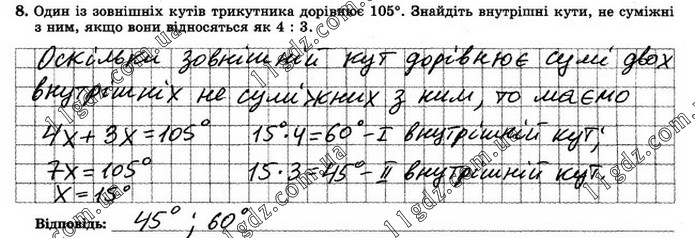 8. Один із зовнішніх кутів трикутника дорівнює 105°. Знайдіть внутрішні кути, не суміжні
з ним, якщо вони відносяться як 4 : 3.
Оскільки зовнішній кут дорівнює сумі двох
внутрішніх не суміжних з ним, то маємо
4x + 3x = 105° 15°·4 = 60° – I внутрішній кут;
7x = 105° 15·3 = 45° – II внутрішній кут.
x = 15°
Відповідь: 45°; 60°
11gdz.com.ua